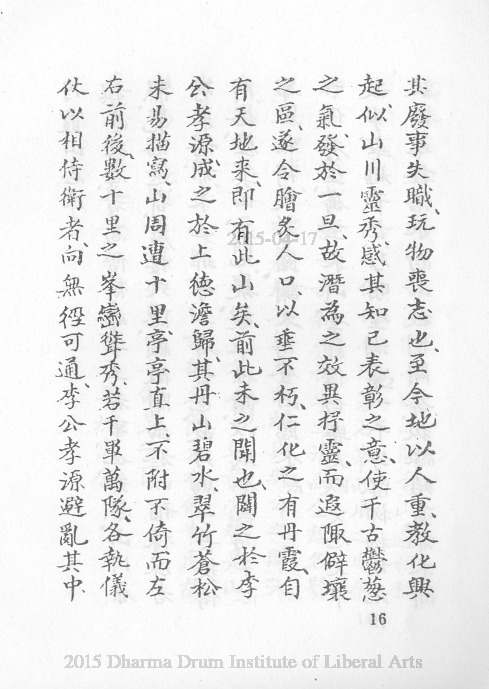 其廢事失職、玩物喪志也、至今地以人重、教化興
起、似山川靈秀、感其知己表彰之意、使千古鬱蔥
之氣、發於一旦、故潛為之效異抒靈、而遐陬僻壤
之區、遂令膾炙人口、以垂不朽、仁化之有丹霞、自
有天地來、即有此山矣、前此未之聞也、闢之於李
公孝源、成之於上德澹歸、其丹山碧水、翠竹蒼松
未易描寫、山周遭十里、亭亭直上、不附不倚、而左
右前後、數十里之峯巒聳秀、若千軍萬隊、各執儀
仗以相侍衛者、向無徑可通、李公孝源避亂其中、
16
2015-04-17
2015 Dharma Drum Institute of Liberal Arts